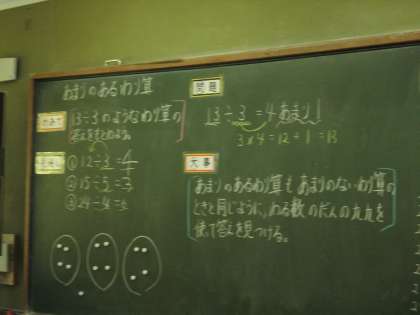 あまりのあるわり算
めあて
13÷3のようなわり算の
答えをまとめよう。
① 12÷3=4
② 15÷5=3
③ 24÷4=6
問題
13÷3=4あまり1
3×4=12+1=13
大事
あまりのあるわり算も あまりのないわり算の
ときと同じように、わる数のだんの九九を
使って答えを見つける。